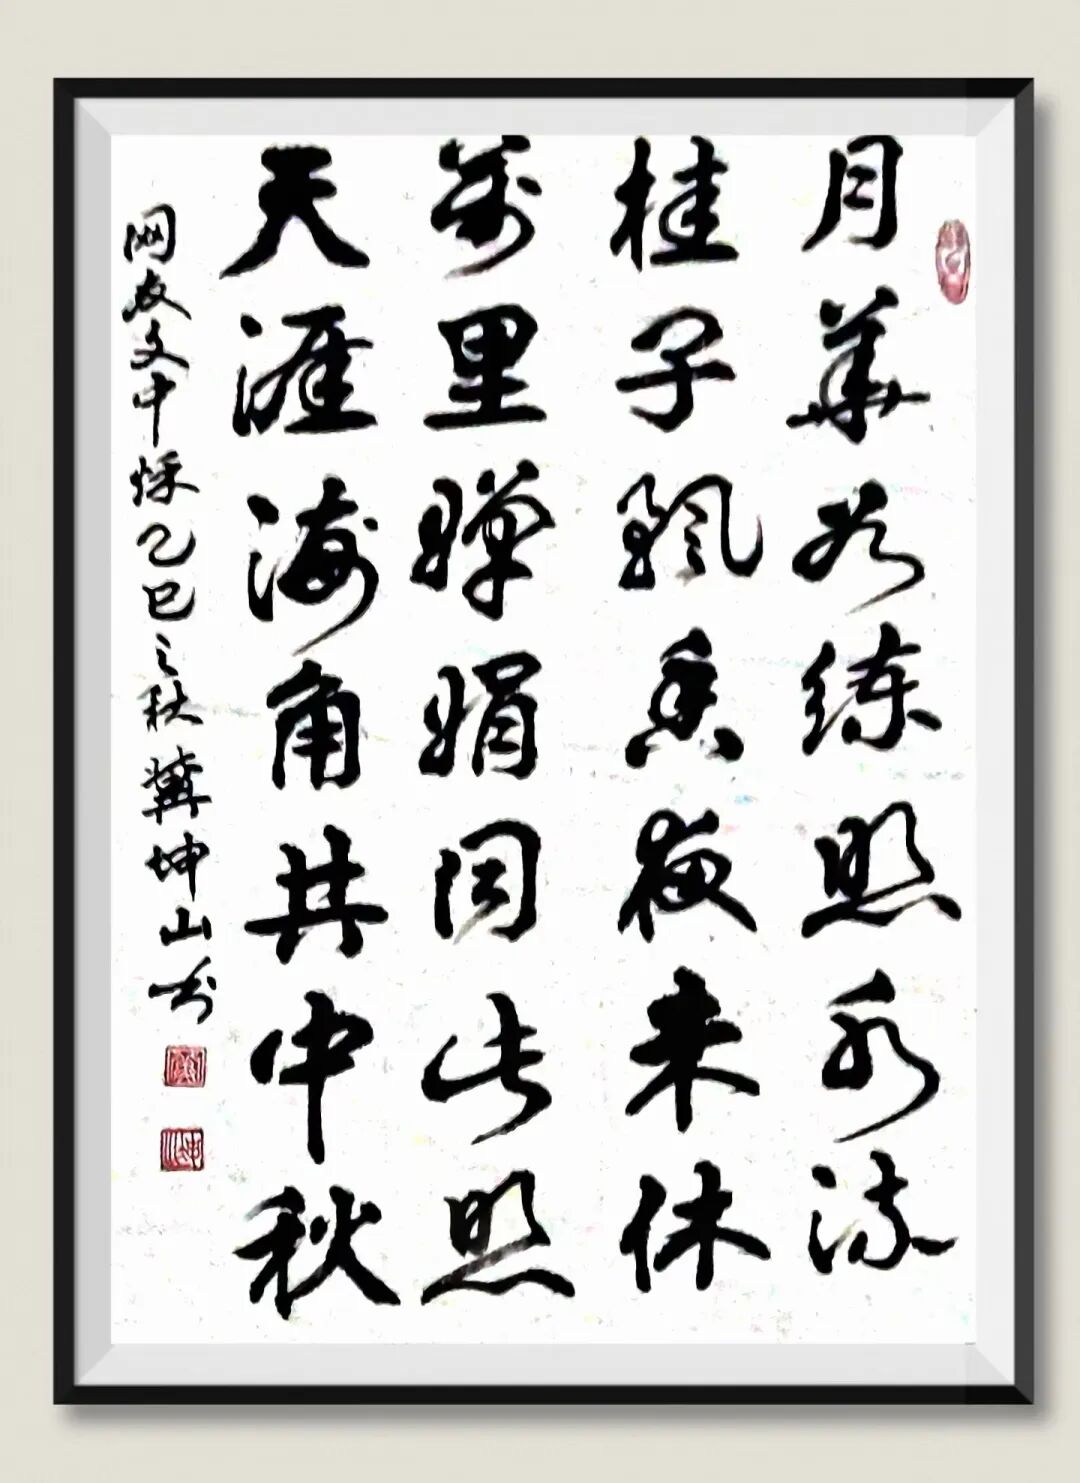 月華如练照水流
桂子飘香夜未休
萬里婵娟同此照
天涯海角共中秋
网友文中秌乙巳之秋冀坤山书